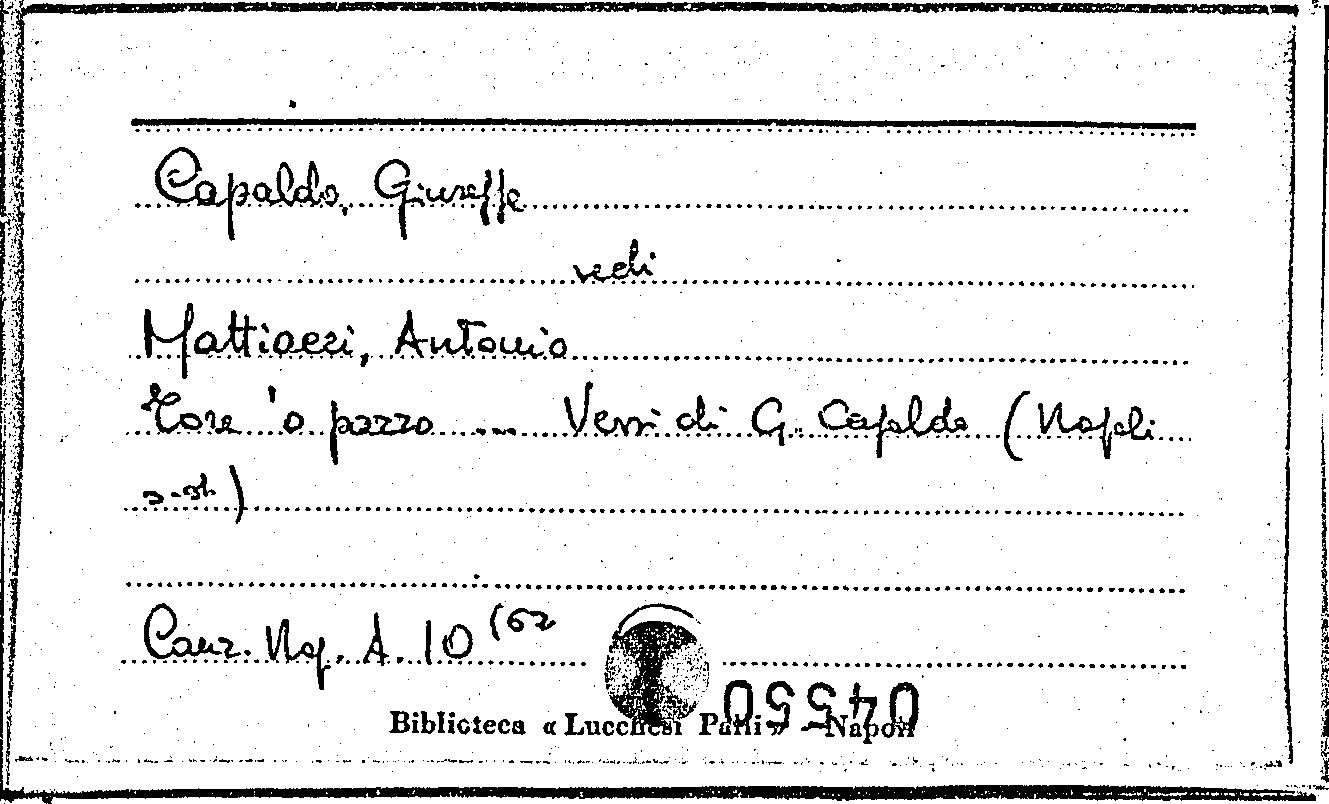 Capaldo, Giuseppe
vedi
Mattiacci, Antonio
Tore 'o pazzo ... Versi di G. Capaldo (Napoli
s.st.)
Canz. Nap. A. 10 (62
04550
Biblioteca « Lucchesi Palli » - Napoli